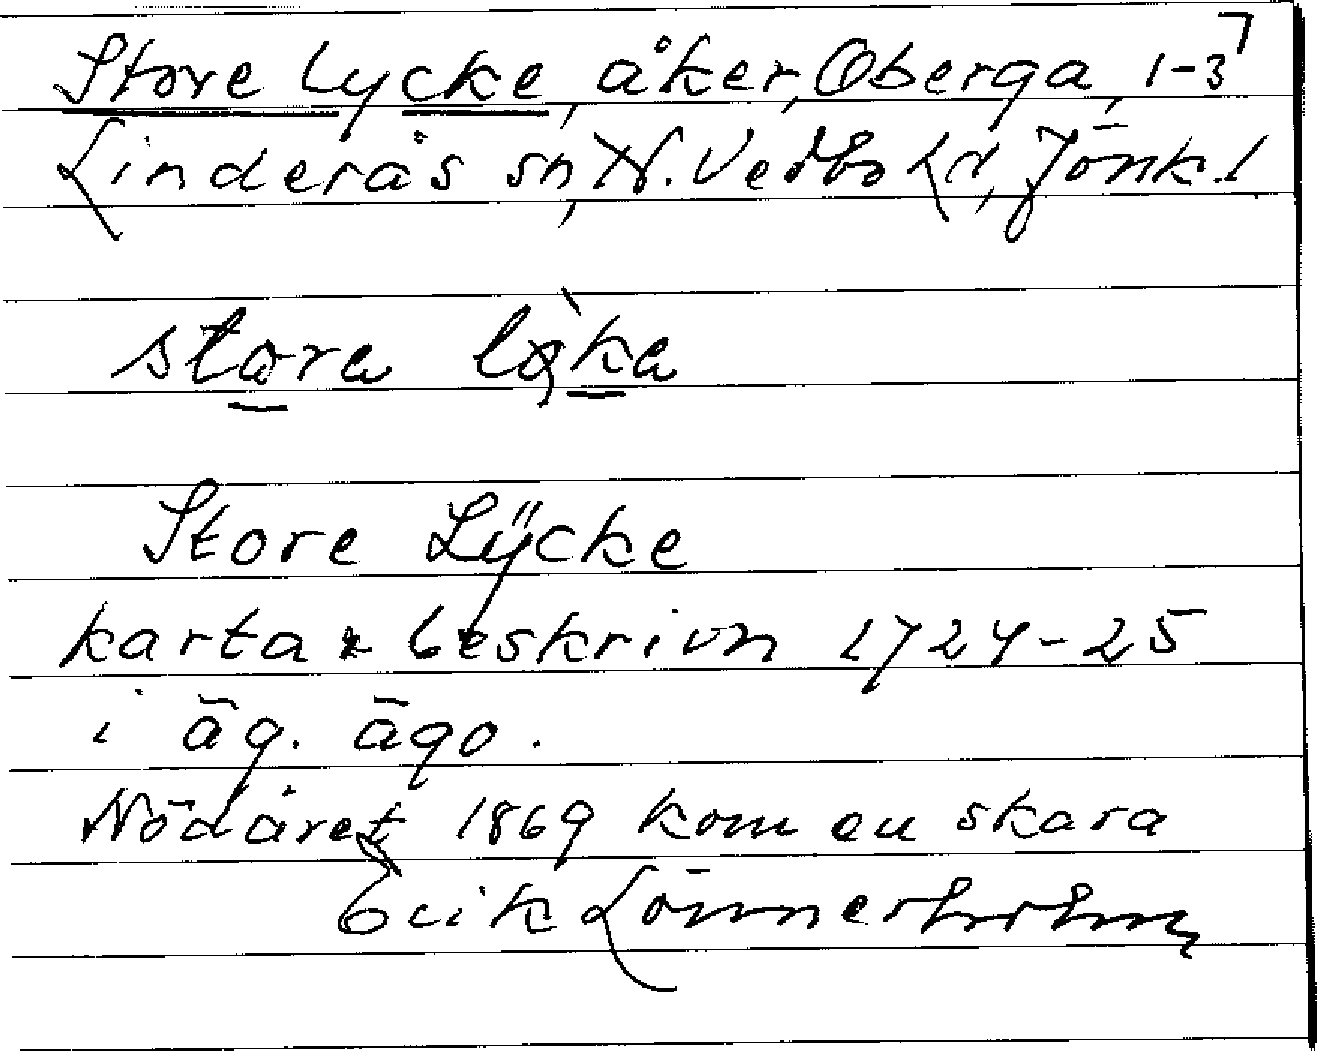 Store Lycke, åker, Oberga, 1-3
Linderås sn, N. Vedbo hd, Jönk. l.
stora lỳka
Store Lÿcke
karta & beskrivn 1724-25
i äg. ägo.
Nödåret 1869 kom en skara
Erik Lönnerholm